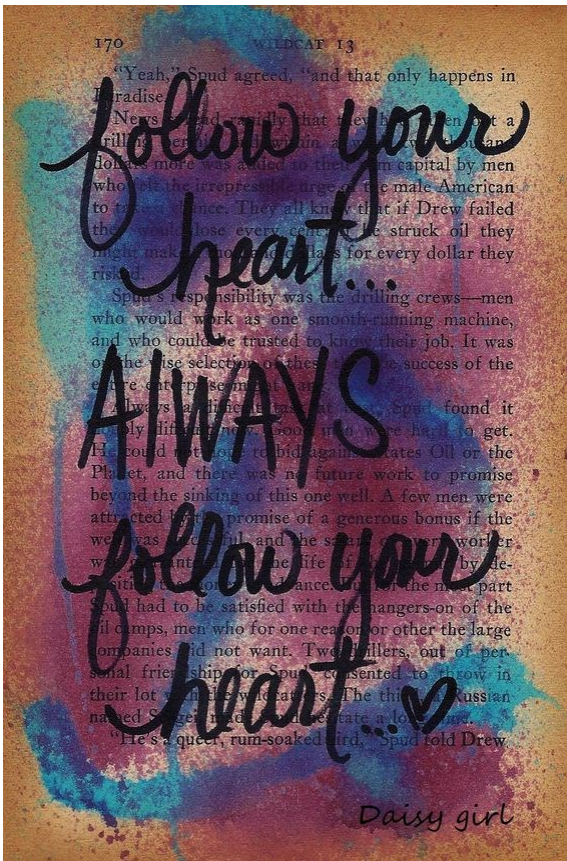 170 WILDCAT 13
follow your
heart...
ALWAYS
follow your
heart...
"Yeah," Spud agreed, "and that only happens in
Paradise.
News rapidly that they a
drilling
dollars more was added to their capital by men
who felt the irrepressible urge of the male American
to chance. They all know that if Drew failed
they would lose every cent. he struck oil they
might make for every dollar they
risked.
Spud's responsibility was the drilling crews—men
who would work as one smooth-running machine,
and who could be trusted to know their job. It was
on the wise selection of these the success of the
entire enterprise
Always a difficult task at Spud found it
doubly difficult now. Good men were hard to get.
He could not hope to bid against States Oil or the
Planet, and there was no future work to promise
beyond the sinking of this one well. A few men were
attracted by the promise of a generous bonus if the
well was and the worker
was the life of by de-
the part
Spud had to be satisfied with the hangers-on of the
oil camps, men who for one reason or other the large
companies did not want. Two drillers, out of per-
sonal friendship for Spud consented to throw in
their lot with the wildcatters. The Russian
named made
"He's a queer, rum-soaked bird," Spud told Drew
Daisy girl